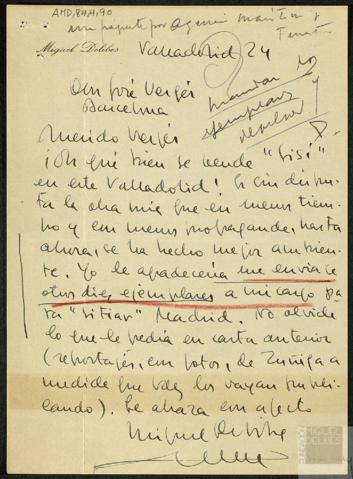 AMD, 84, 4, 90
un paquete por Agencia Marítima y Terrestre
Miguel Delibes
Valladolid 24
Don José Vergés
Barcelona
mandar 10
ejemplares y
devolver
Querido Vergés
¡Qué bien se vende "Sisí"
en este Valladolid! Es sin dispu-
ta la obra mía que en menos tiem-
po y con menos propaganda, hasta
ahora, se ha hecho mejor ambien-
te. Yo le agradecería me enviase
otros diez ejemplares a mi cargo pa-
ra "sitiar" Madrid. No olvide
lo que le pedía en carta anterior
(reportajes, con fotos, de Zúñiga a
medida que Vdes. los vayan publi-
cando). Le abraza con afecto
Miguel Delibes